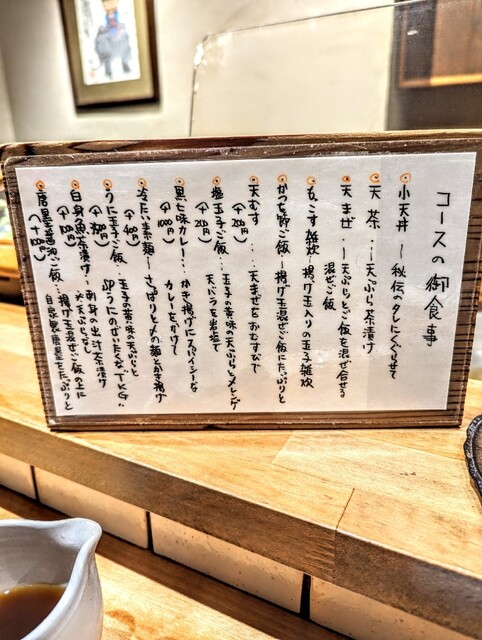 コースの御食事
小天丼 ー 秘伝のタレにくぐらせて
天茶 … ー天ぷら茶漬け
天まぜ … ー天ぷらとご飯を混ぜ合せる
混ぜご飯
もっこす雑炊ー揚げ玉入りの玉子雑炊
かつを節ご飯ー揚げ玉混ぜご飯にたっぷりと
天むす … 天まぜをおむすびで
(+200円)
塩玉子ご飯 … 玉子の黄味の天ぷらとメレンゲ
(+200円)
天バラを岩塩で
黒七味カレー … かき揚げにスパイシーな
(+1000円)
カレーをかけて
冷たい素麺ーさっぱりと〆の麺とかき揚げ
(+400円)
うに玉子ご飯 … 玉子の黄味の天ぷらと
卵うにのぜいたくなTKG
白身魚茶漬けー刺身の出汁茶漬け
※天ぷらなし
唐墨醤油ご飯 … 揚げ玉混ぜご飯の上に
自家製唐墨をたっぷりと